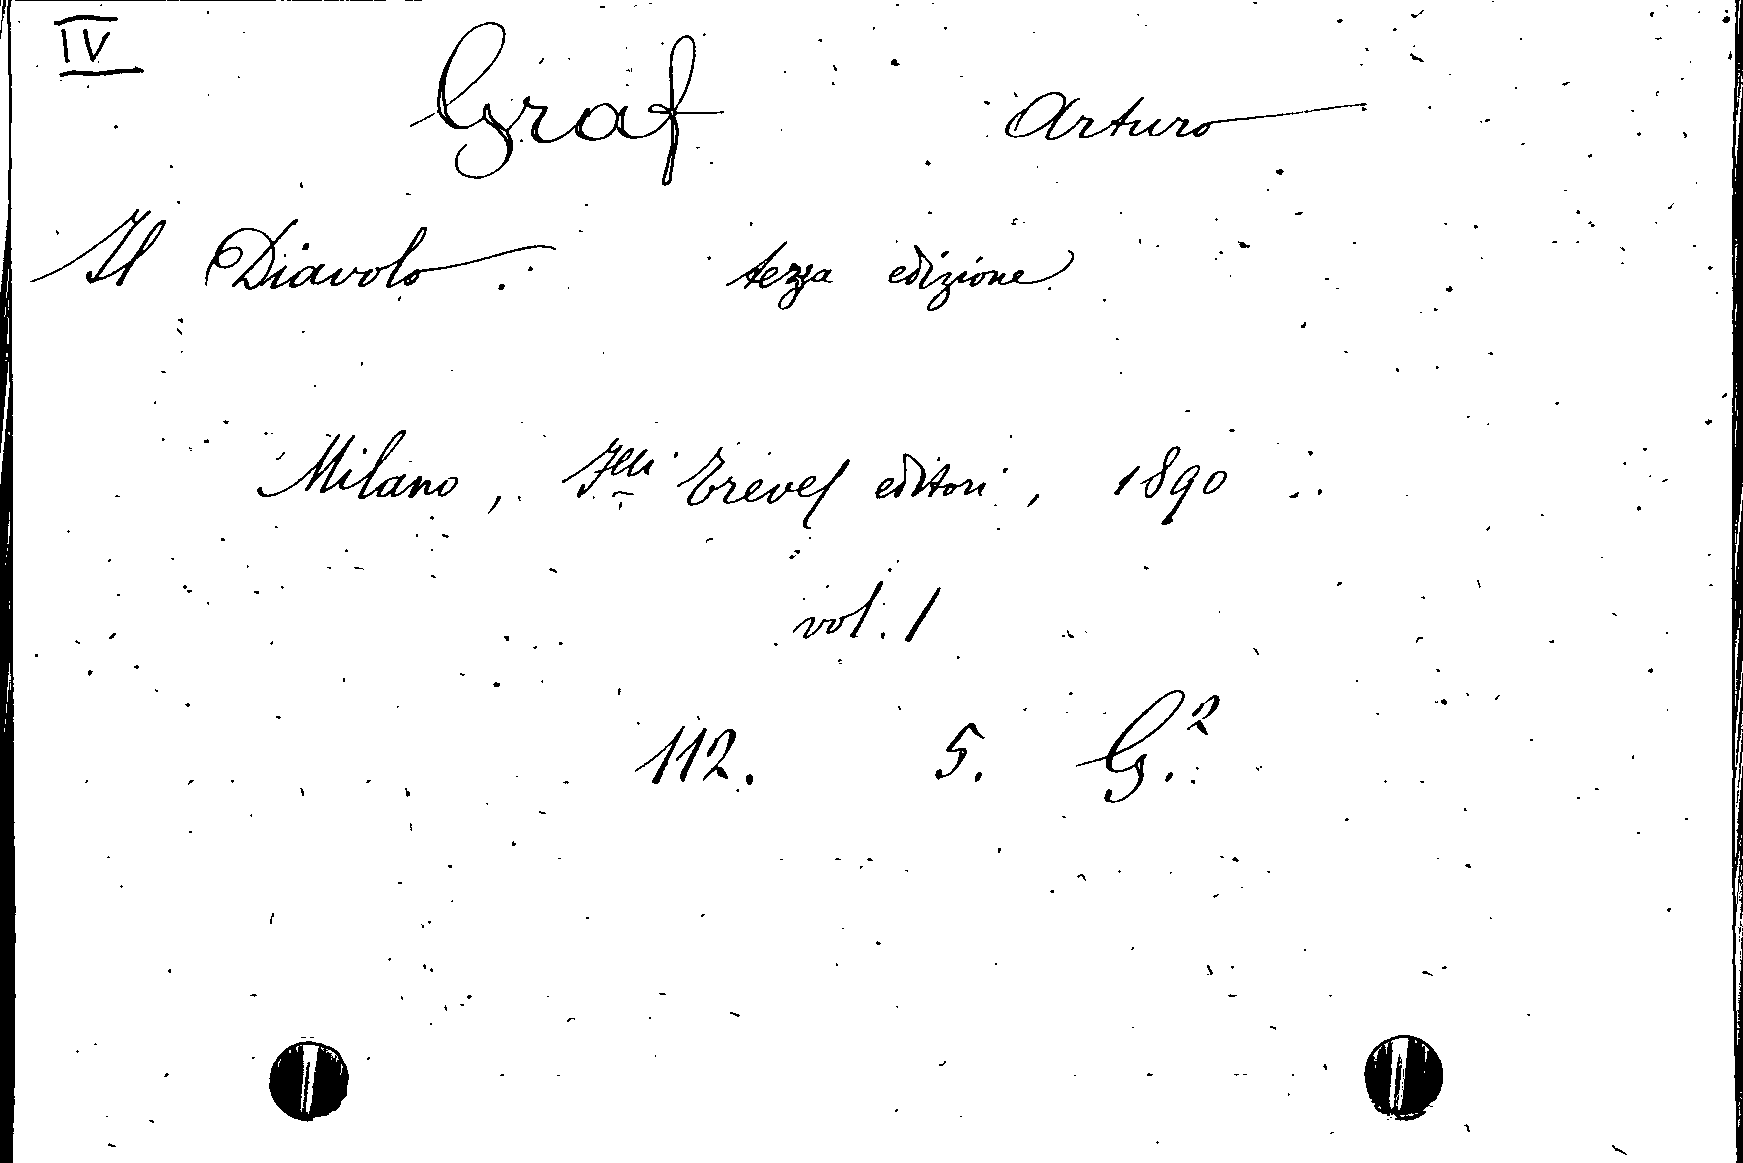 IV
Graf Arturo
Il Diavolo. tezza edizione
Milano, Flli Treves editori, 1890
vol. 1
112. 5. G.2